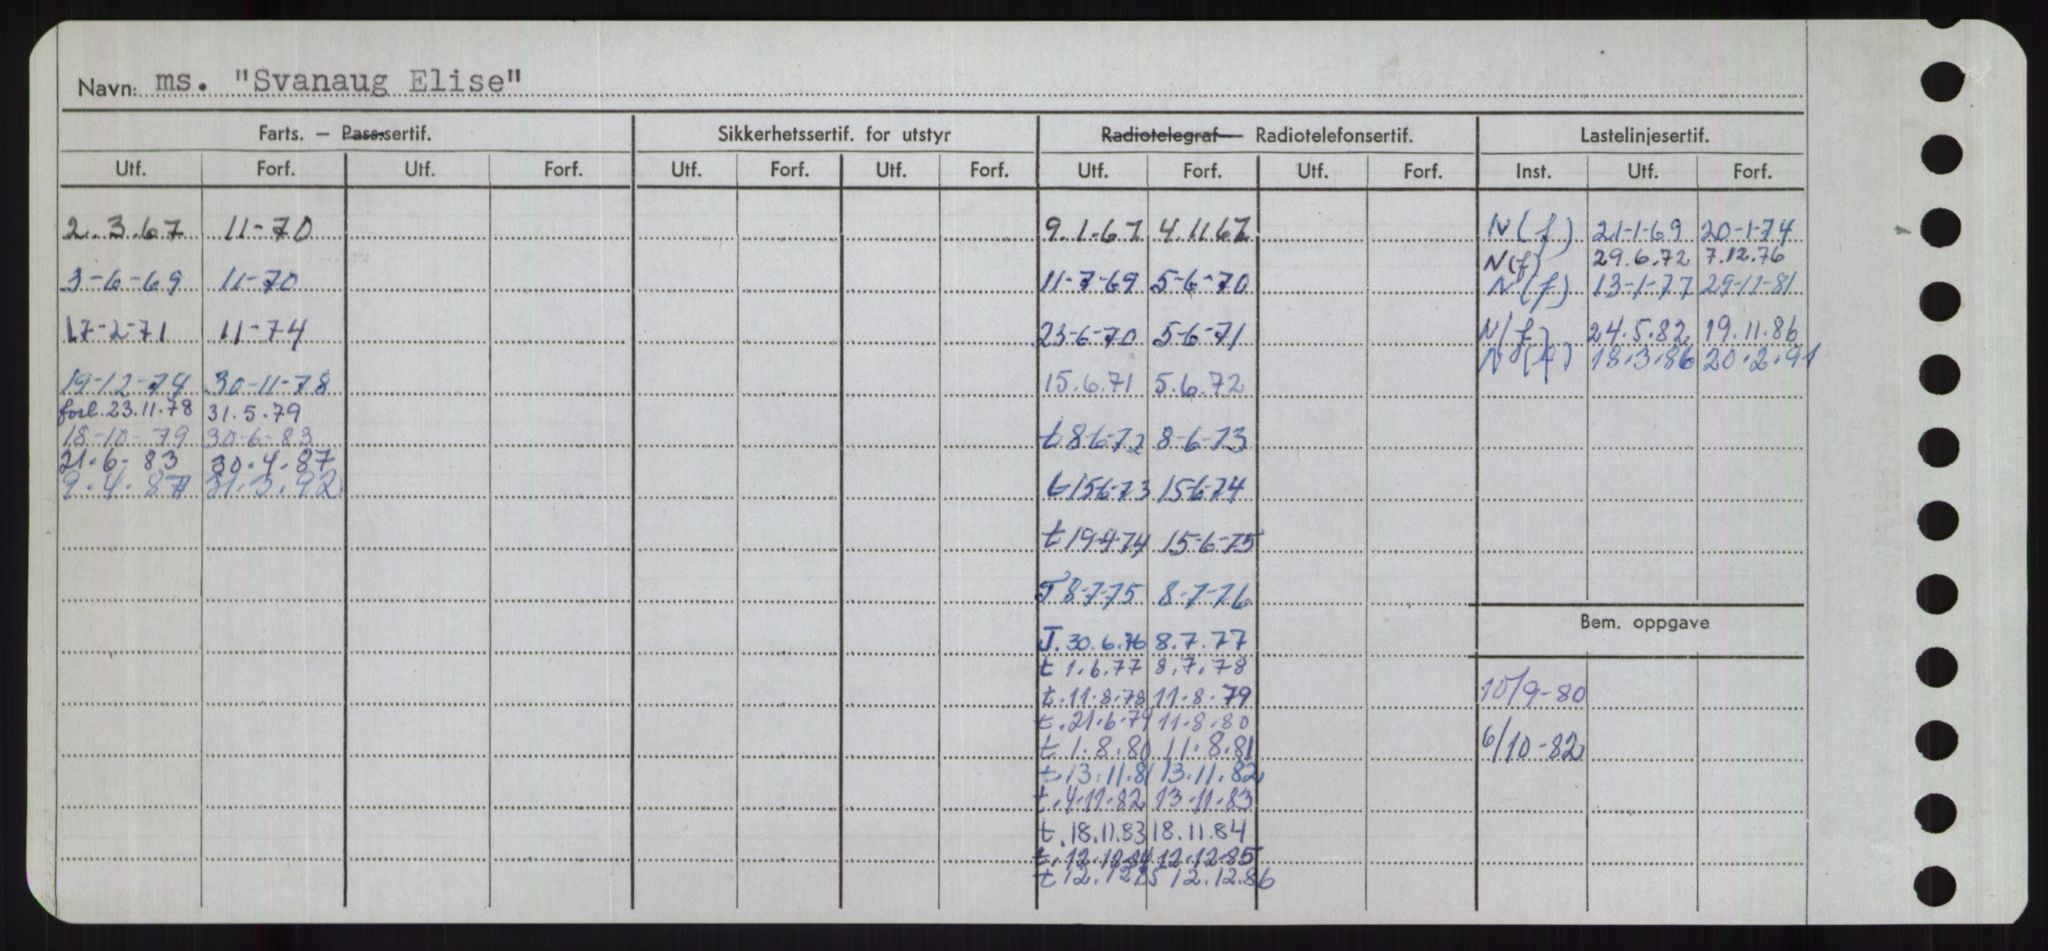 Navn: ms. "Svanaug Elise"
Farts. — Pass.sertif. Sikkerhetssertif. for utstyr Radiotelegraf— Radiotelefonsertif. Lastelinjesertif.
Utf. Forf. Utf. Forf. Utf. Forf. Utf. Forf. Utf. Forf. Utf. Forf. Inst. Utf. Forf.
2.3.67 11-70 9.1-67 4.1167 N(f) 21-1-69 20-1-74
N(f) 29.6.72 7.12.76
3-6-69 11-70 11-7-69 5-6-70 N(f) 13-1-77 29-11-81
17-2-71 11-74 23-6-70 5-6-71 N(f) 24.5.82 19.11.86
N(f) 18.3.86 20.2.91
19-12-74 30-11-78 15.6.71 5.6.72
forl. 23.11.78 31.5.79
18-10-79 30-6-83 t 8-6-72 8-6-73
21.6-83 30.4.87
9.4.87 31.3.92 t 15-6-73 15-6-74
t 19-9-74 15-6-75
T 8-7-75 8-7-76
Bem. oppgave
J. 30.6.76 8.7.77
t 1.6.77 8.7.78
t. 11.8.78 11.8.79 10/9-80
t. 21.6.79 11.8.80
t 1.8.80 11.8.81 6/10-82
t. 13.11.81 13.11.82
t. 4.11.82 13.11.83
t. 18.11.83 18.11.84
t. 12.12.84 12.12.85
t 12.12.85 12.12.86